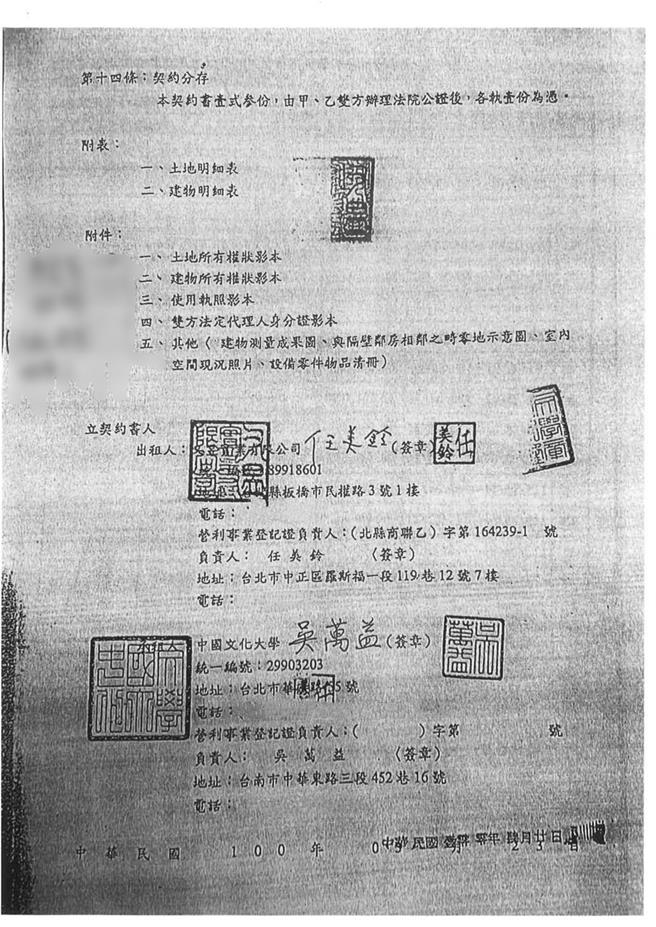 第十四條：契約分存
本契約書壹式參份，由甲、乙雙方辦理法院公證後，各執壹份為憑。
附表：
一、土地明細表
二、建物明細表
附件：
一、土地所有權狀影本
二、建物所有權狀影本
三、使用執照影本
四、雙方法定代理人身分證影本
五、其他（建物測量成果圖、與隔壁鄰房相鄰之畸零地示意圖、室內
空間現況照片、設備零件物品清冊）
立契約書人
出租人：限公司 任美鈴（簽章） 任美鈴
89918601
縣板橋市民權路3號1樓
電話：
營利事業登記證負責人：（北縣商聯乙）字第164239-1 號
負責人： 任美鈴 （簽章）
地址：台北市中正區羅斯福一段119巷12號7樓
電話：
承租人 中國文化大學 吳萬益（簽章） 吳萬益
統一編號：29903203
地址：台北市華5號
電話：
營利事業登記證負責人：（ ）字第 號
負責人： 吳萬益 （簽章）
地址：台南市中華東路三段452巷16號
電話：
中華民國 100 年 0
中華民國 年 月廿日